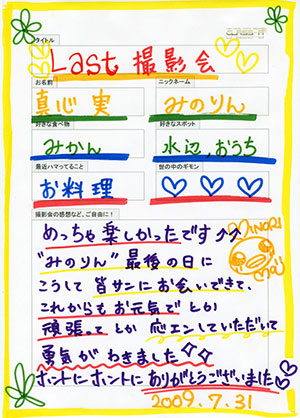 タイトル
Last 撮影会
お名前
ニックネーム
真心 実
みのりん
好きな食べ物
好きなスポット
みかん
水辺、おうち
最近ハマってること
世の中のギモン
お料理
♡♡♡♡
撮影会の感想など、ご自由に！
めっちゃ楽しかったです♪♪
MINORI
"みのりん"最後の日に
こうして皆サンにお会いできて、
これからもお元気で とか
頑張って とか 応エンしていただいて
勇気がわきました
ホントにホントにありがとうございました♡
2009.7.31